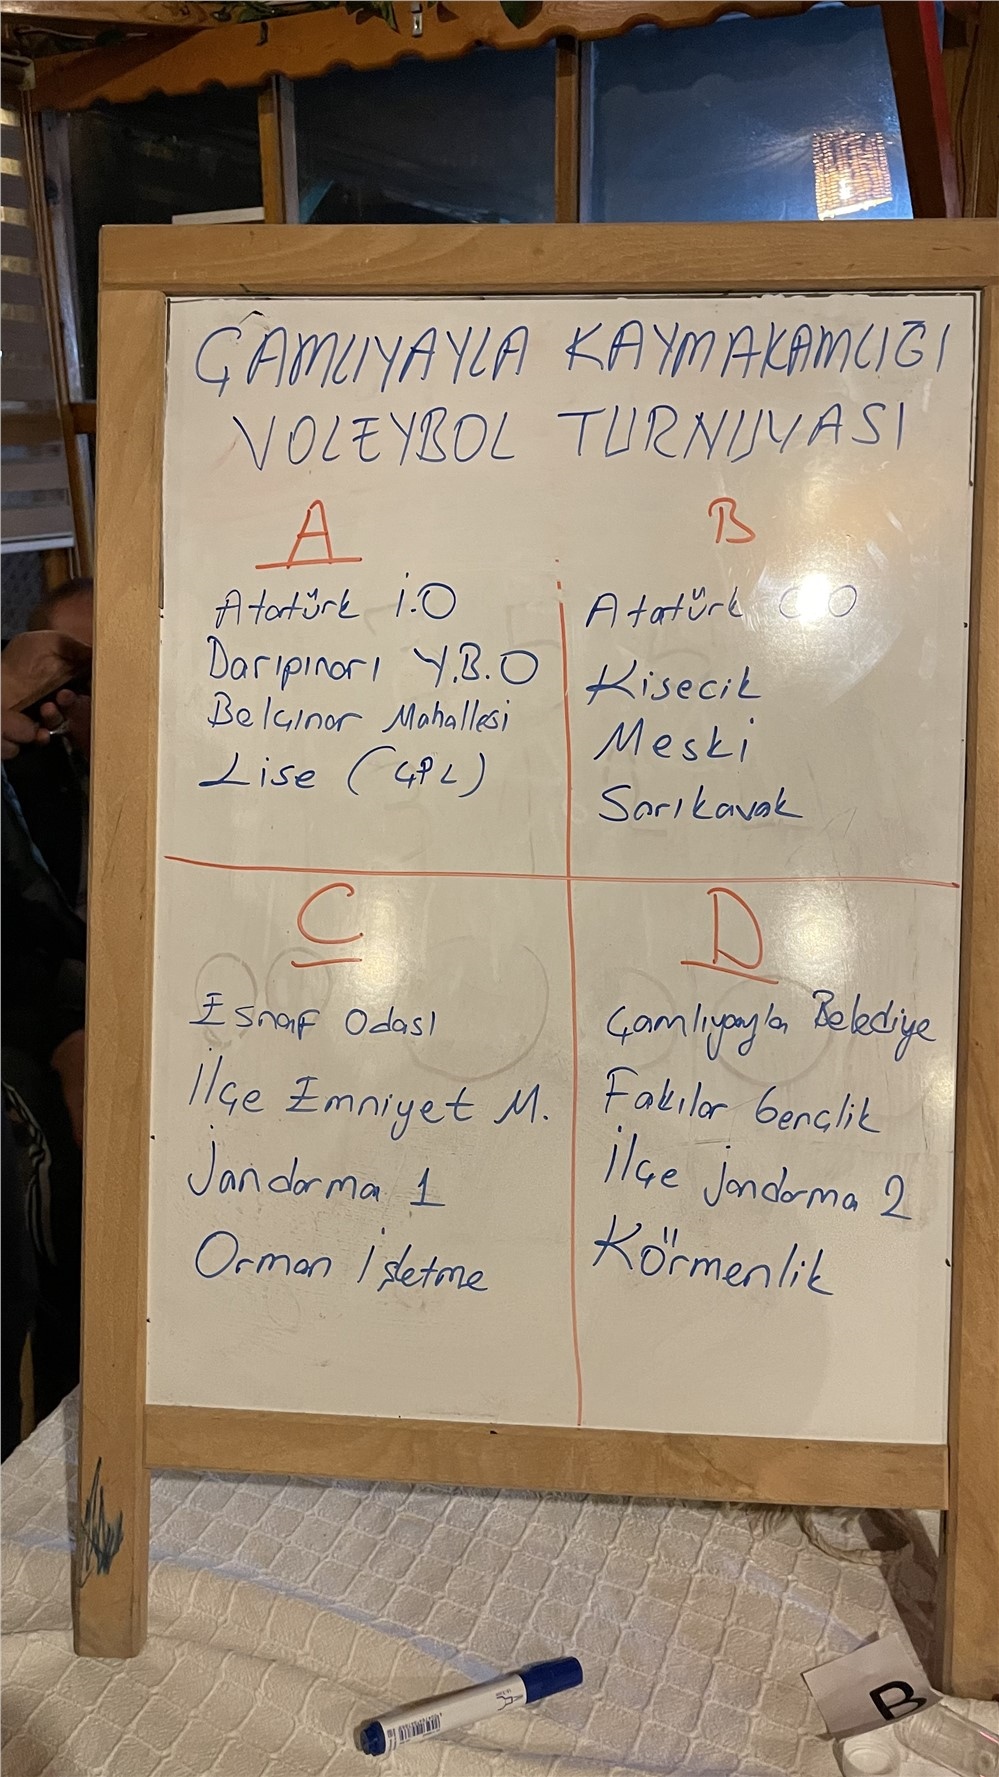 ÇAMLIYAYLA KAYMAKAMLIĞI
VOLEYBOL TURNUVASI
A
Atatürk İ.O
Darıpınarı Y.B.O
Belçınar Mahallesi
Lise (ÇPL)
B
Atatürk O O
Kisecik
Meski
Sarıkavak
C
Esnaf Odası
İlçe Emniyet M.
Jandarma 1
Orman İşletme
D
Çamlıyayla Belediye
Fakılar Gençlik
İlçe Jandarma 2
Körmenlik
B